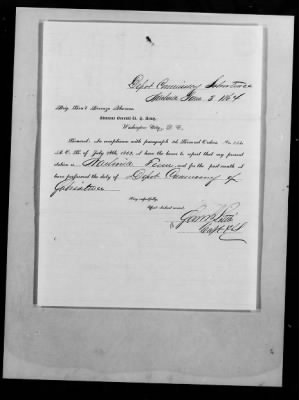 Depot Commissary Subsistence
June 3 1864
Brig. Gen'l Lorenzo Thomas
Adjutant General U. S. Army,
Washington City, D. C.
General: In compliance with paragraph General Orders No. 244
A. G. O. of July 28th, 1863, I have the honor to report that my present
station is Tenn and for the past month I
have performed the duty of Depot Commissary of
Subsistence
Very respectfully,
Your obedient servant,
Capt & C.S.